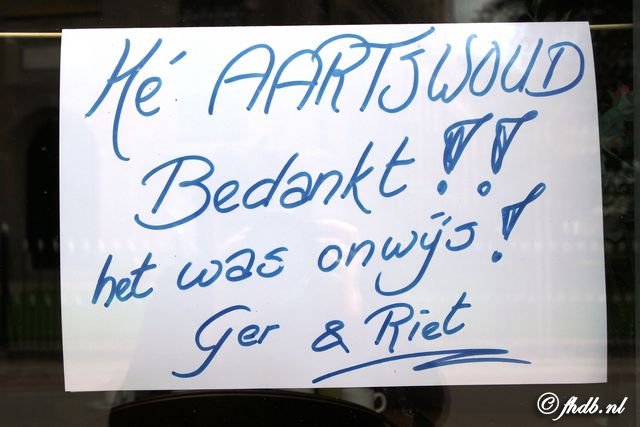 Hé AARTSWOUD
Bedankt!!
het was onwijs!
Ger & Riet
© fhdb.nl